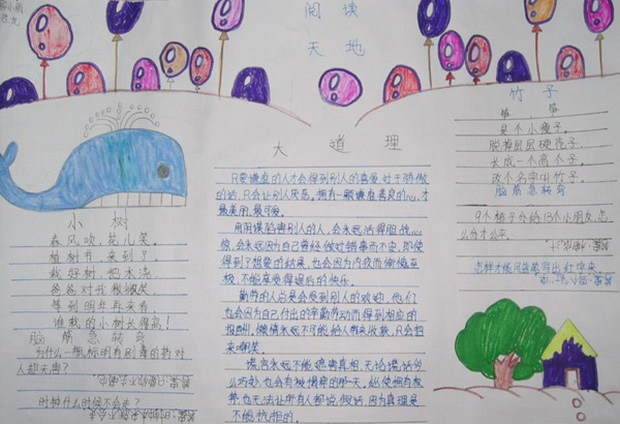 阅读
天地
小树
春风吹，花儿笑。
植树节，来到了。
我好树，把水浇，
爸爸对我微微笑。
等到明年再来看，
谁栽的小树长得高！
脑筋急转弯
为什么一瓶标明有剧毒的药对
人却无害？
时钟什么时候不会走？
大道理
只要谦虚的人才会得到别人的喜爱，对于骄傲
的话，只会让别人厌恶。拥有一颗谦虚善良的心，才
最美丽，最可爱。
用阴谋陷害别人的人，会永远活得胆战心
惊，会永远因为自己曾经做过错事而不安，即使
得到了想要的结果，也会因为内疚而懊悔至
极，不能享受得逞后的快乐。
勤劳的人总是会受到别人的欢迎，他们
也会因为自己付出的辛勤劳动而得到相应的
报酬，懒惰永远不可能给人带来收获，只会招
来嘲笑。
谎言永远不能遮害真相，无论谎话多
么巧妙，也会有被揭穿的那一天，纵使拥有权
势，也无法让所有人都说假话，因为真理是
不能抗拒的。
竹子
笋笋
是个小瘦子，
脱掉层层硬壳子，
长成一个高个子，
改个名字叫竹子。
脑筋急转弯
9个橙子分给13个小朋友，怎
么分才公平
怎样才能用蓝笔写出红字来